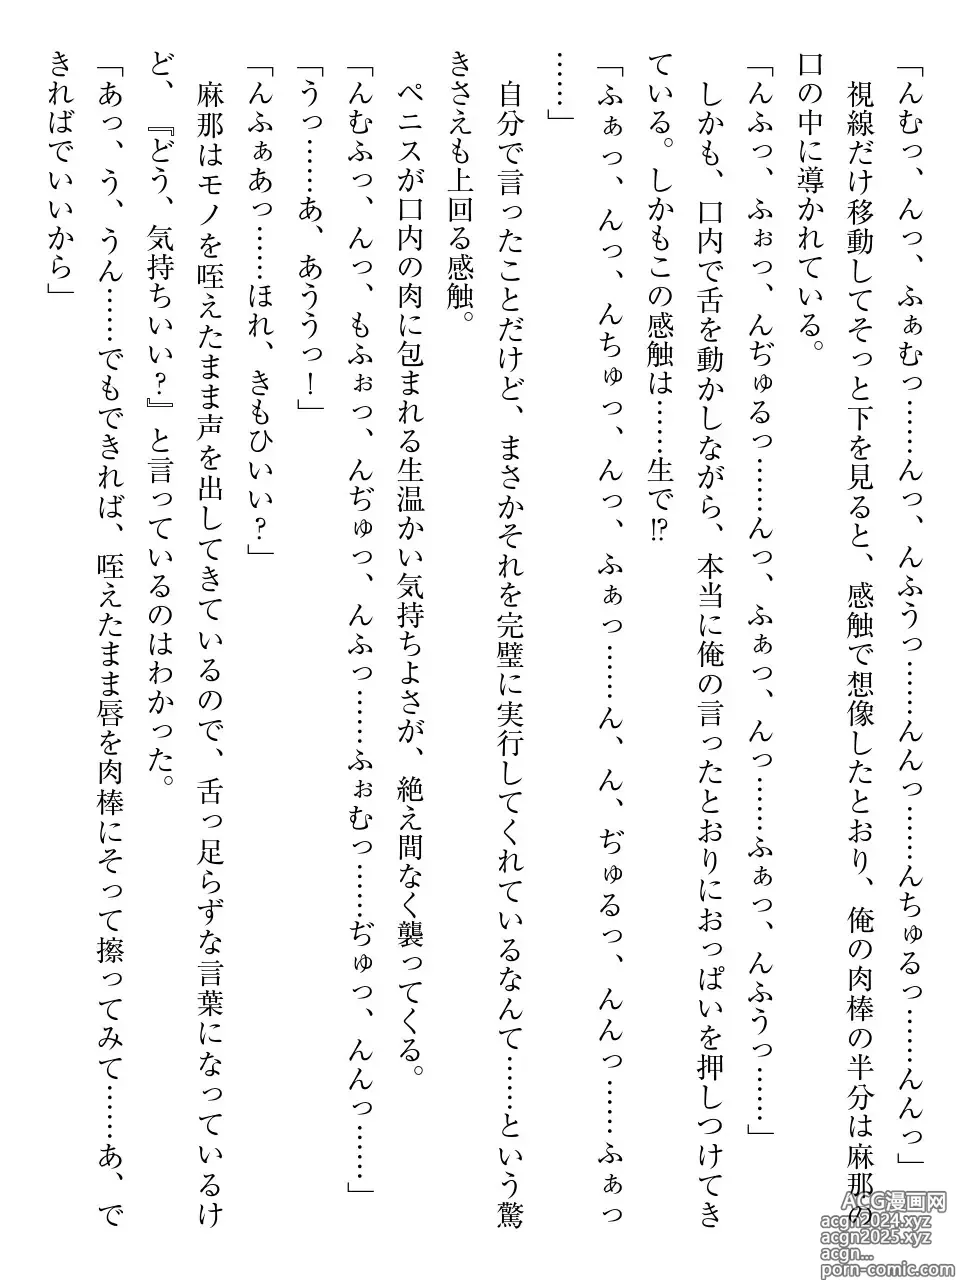 「んむっ、んっ、ふぁむっ……んっ、んふうっ……んんっ……んちゅるっ……んんっ」
視線だけ移動してそっと下を見ると、感触で想像したとおり、俺の肉棒の半分は麻那の
口の中に導かれている。
「んふっ、ふぉっ、んぢゅるっ……んっ、ふぁっ、んっ……ふぁっ、んふうっ……」
しかも、口内で舌を動かしながら、本当に俺の言ったとおりにおっぱいを押しつけてき
ている。しかもこの感触は……生で⁉
「ふぁっ、んっ、んちゅっ、んっ、ふぁっ……ん、ん、ぢゅるっ、んんっ……ふぁっ
……」
自分で言ったことだけど、まさかそれを完璧に実行してくれているなんて……という驚
きさえも上回る感触。
ペニスが口内の肉に包まれる生温かい気持ちよさが、絶え間なく襲ってくる。
「んむふっ、んっ、もふぉっ、んぢゅっ、んふっ……ふぉむっ……ぢゅっ、んんっ……」
「うっ……あ、あううっ！」
「んふぁあっ……ほれ、きもひいい？」
麻那はモノを咥えたまま声を出してきているので、舌っ足らずな言葉になっているけ
ど、『どう、気持ちいい？』と言っているのはわかった。
「あっ、う、うん……でもできれば、咥えたまま唇を肉棒にそって擦ってみて……あ、で
きればでいいから」
ACG漫画网
acgn2024.xyz
acgn2025.xyz
acgn...
porn-comic.com